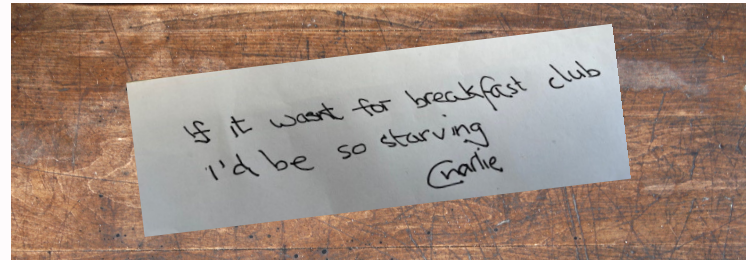 If it wasnt for breakfast club
i'd be so starving
Charlie